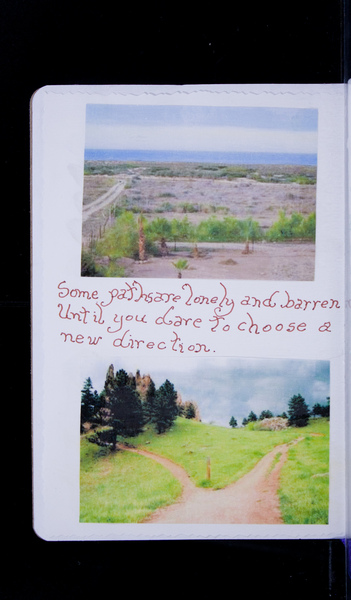 Some paths are lonely and barren
Until you dare to choose a
new direction.